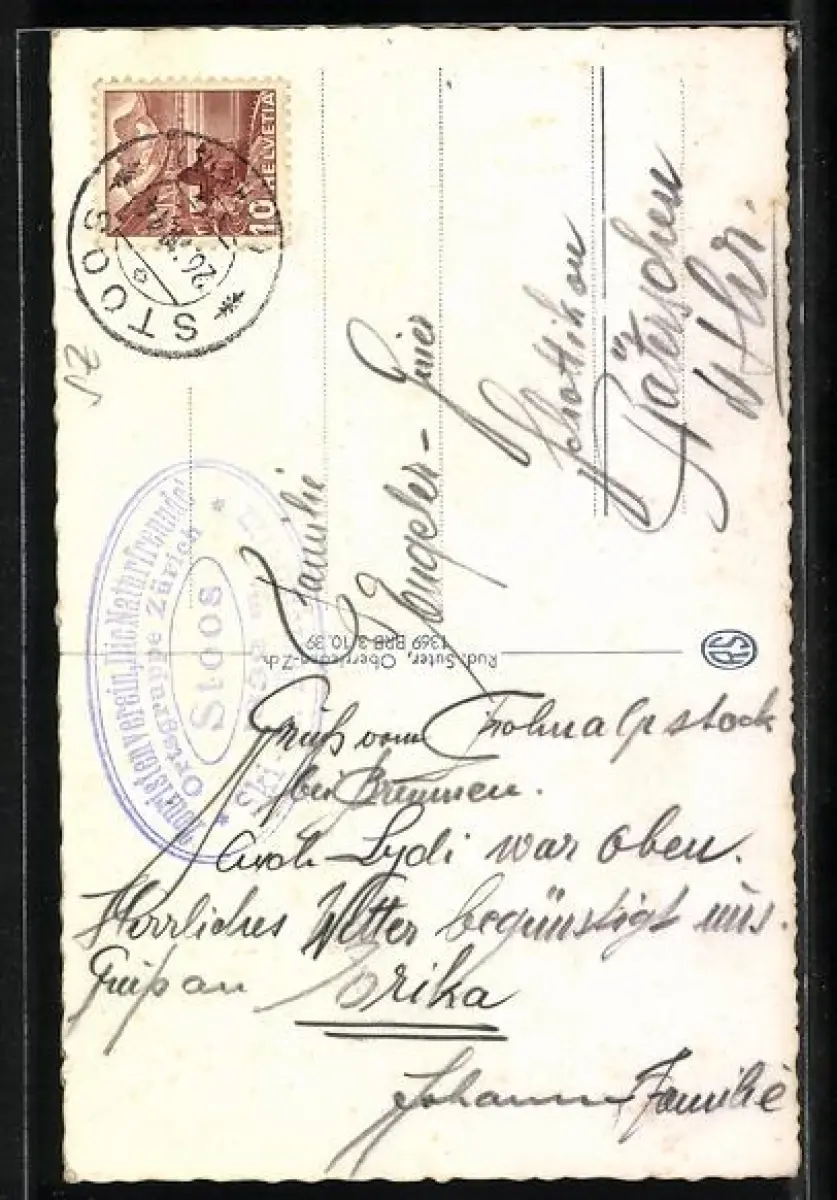 10 HELVETIA
STOOS
SZ
Touristenverein "Die Naturfreunde"
Ortsgruppe Zürich
Stoos
Ski-
Familie
Engeler-
Schottikon
Räterschen
Rud. Suter, Oberrieden-Zch.
1369 BRB 3.10.39
RS
Gruß vom Frohnalpstock
bei Brunnen.
Auch Lydi war oben.
Herrliches Wetter begünstigt uns.
Gruß an Erika
Familie